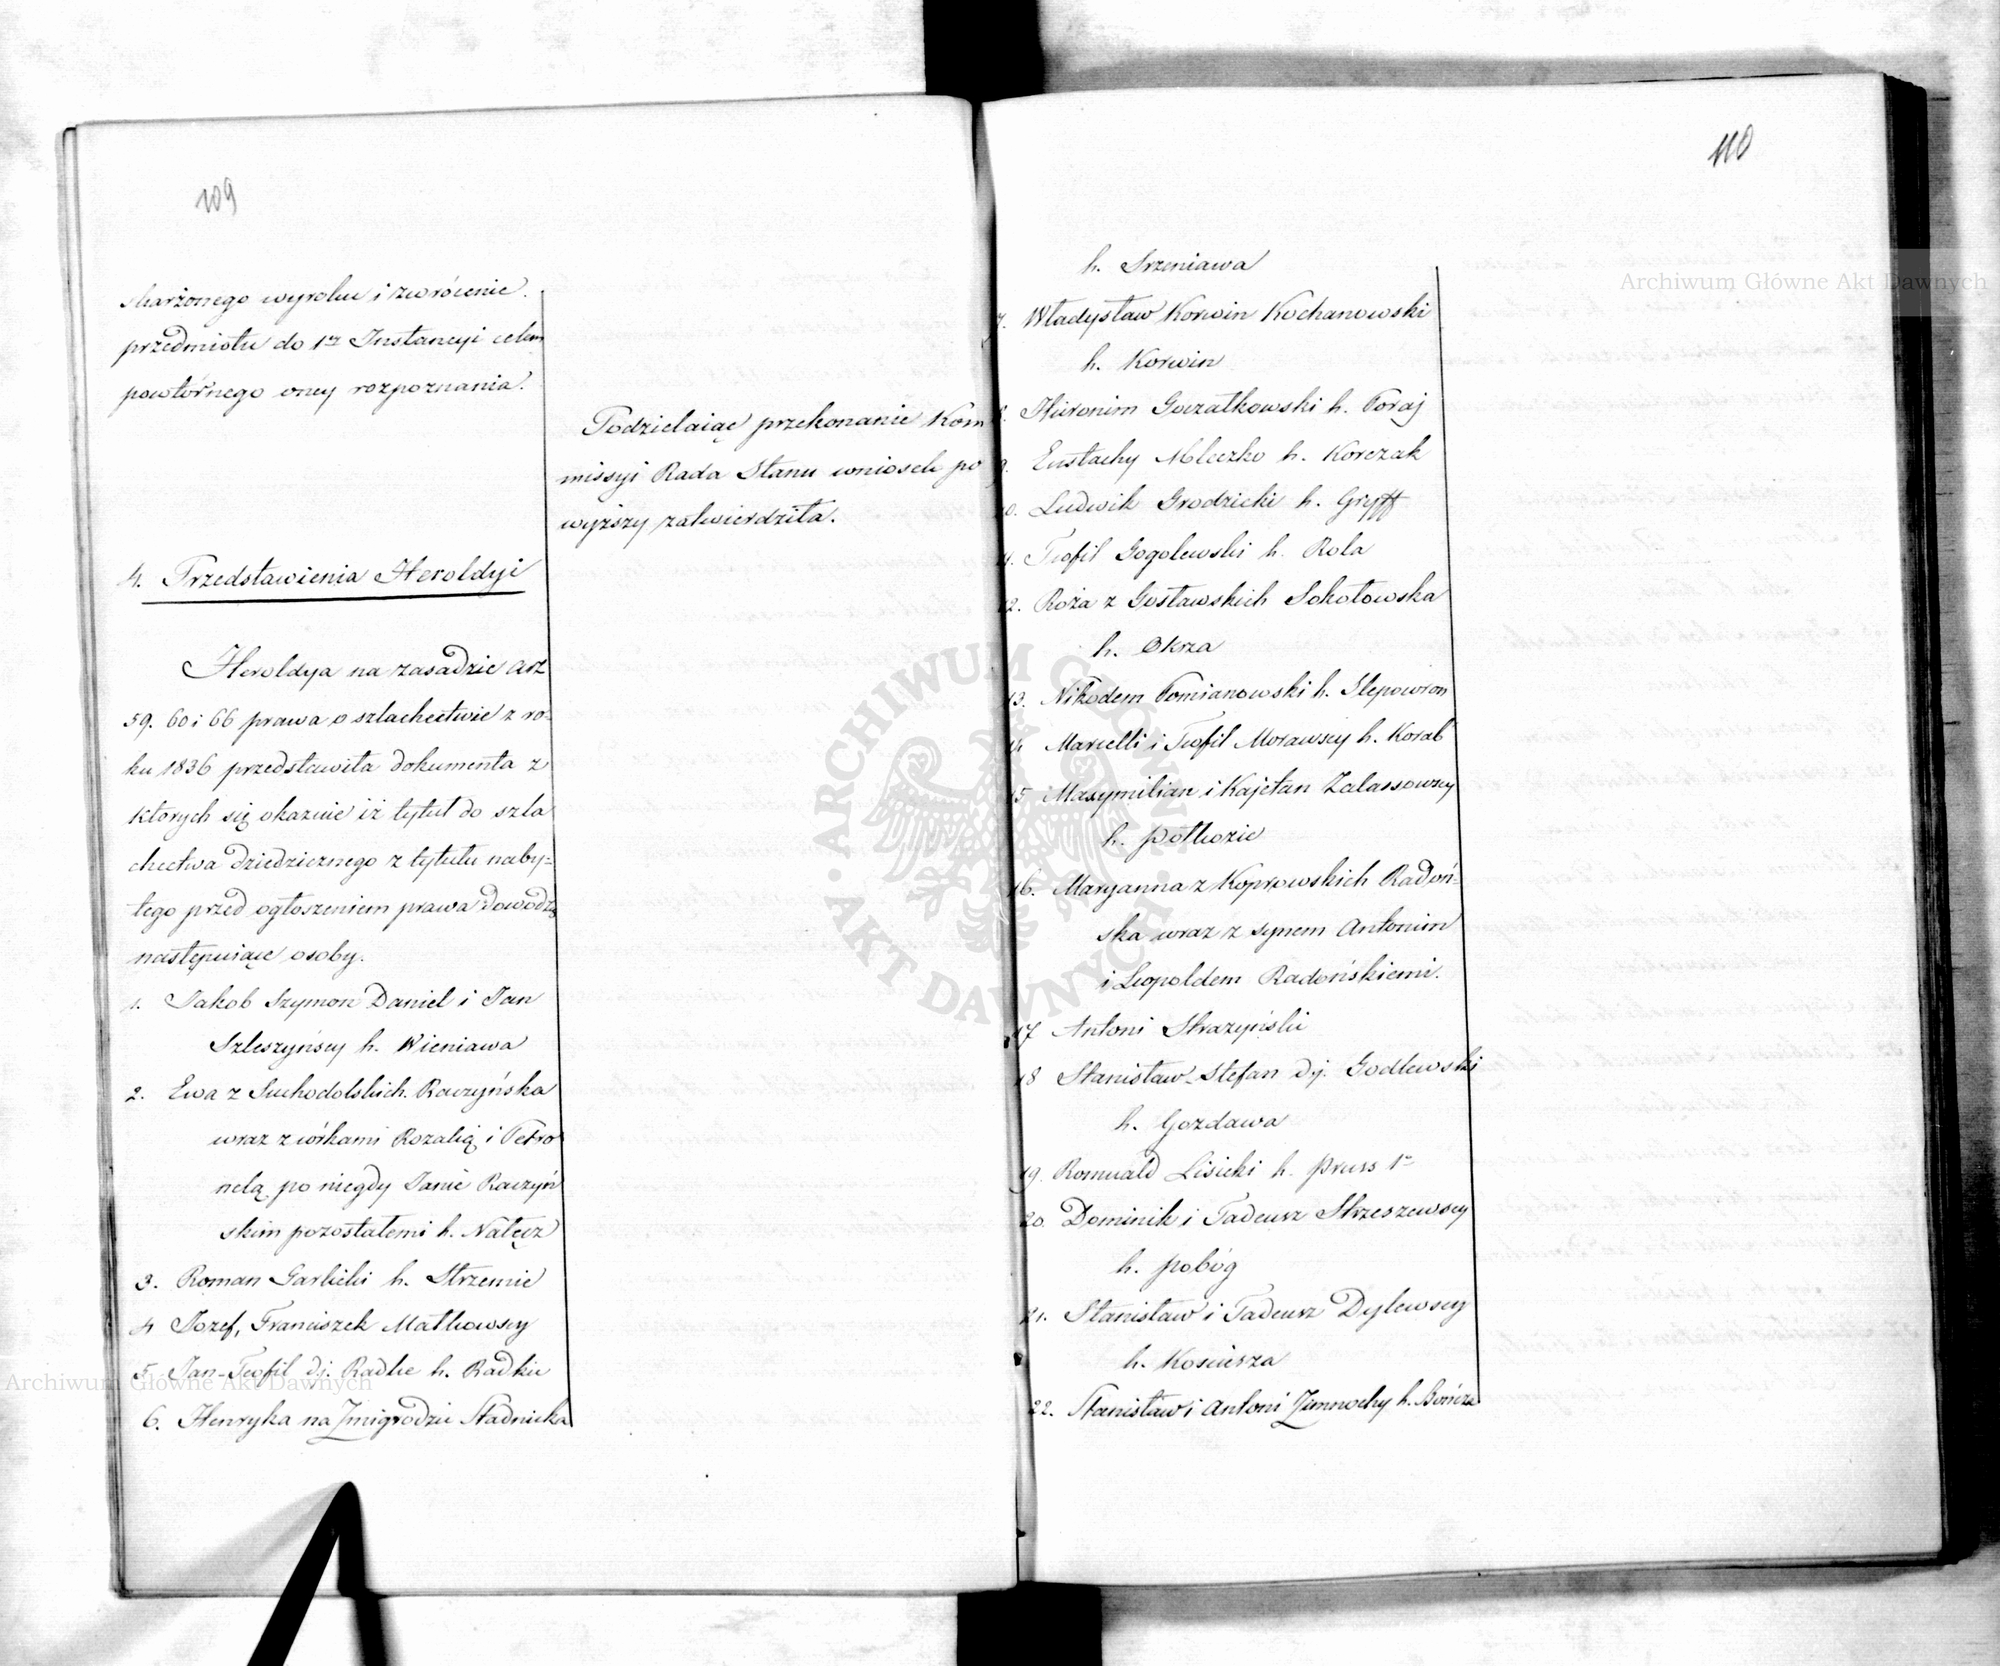 109
skarżonego wyroku i zwrócenie
przedmiotu do 1ej Instancyi celem
powtórnego oney rozpoznania.
Podzielaiąc przekonanie Kom
missyi Rada Stanu wniosek po
wyższy zatwierdziła.
4. Przedstawienia Heroldyi
Heroldya na zasadzie art
59. 60 i 66 prawa o szlachectwie z ro-
ku 1836 przedstawiła dokumenta z
których się okazuie iż tytuł do szla
chectwa dziedzicznego z tytułu naby=
tego przed ogłoszeniem prawa dowodzą
następuiące osoby.
1. Jakob Szymon Daniel i Jan
Szleszyńscy h. Wieniawa
2. Ewa z Suchodolskich Raczyńska
wraz z córkami Rozalią i Petro
nelą po niegdy Janie Raczyń
skim pozostałemi h. Nałęcz
3. Roman Garlicki h. Strzemie
4 Jozef, Franciszek Małkowscy
5. Jan-Teofil dj. Radke h. Radkie
6. Henryka na Żmigrodzie Stadnicka
110
h. Srzeniawa
7. Władysław Korwin Kochanowski
h. Korwin
8. Hieronim Goczałkowski h. Poraj
9. Eustachy Mleczko h. Korczak
10. Ludwik Grodzicki h. Gryff
11. Teofil Gogolewski h. Rola
12. Roża z Gosławskich Sokołowska
h. Okrza
13. Nikodem Pomianowski h. Slepowron
14 Marcelli i Teofil Morawscy h. Korab
15 Maxymilian i Kajetan Zalassowscy
h. Połkozie
16. Maryanna z Koprowskich Radoń-
ska wraz z synem Antonim
i Leopoldem Radońskiemi.
17 Antoni Skrazyński
18 Stanisław-Stefan dj. Godlewski
h. Gozdawa
19. Romuald Lisicki h. Pruss 1o
20. Dominik i Tadeusz Skrzeszewscy
h. Pobóg
21. Stanisław i Tadeusz Dylewscy
h. Kosciesza
22. Stanisław i Antoni Zimnochy h. Bończa
Archiwum Główne Akt Dawnych
Archiwum Główne Akt Dawnych
ARCHIWUM GŁÓWNE AKT DAWNYCH